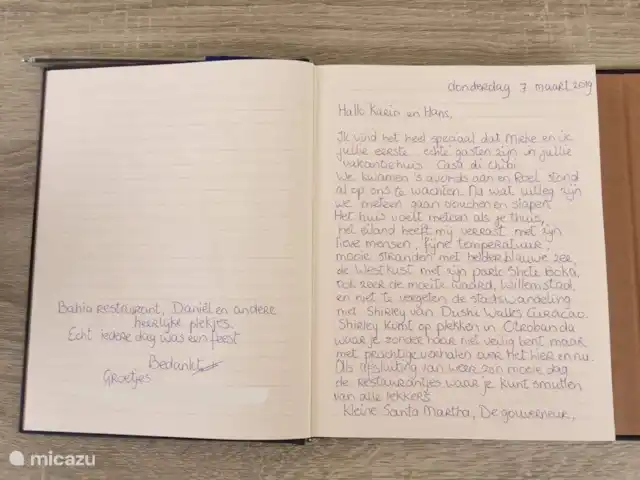 donderdag 7 maart 2019
Hallo Karin en Hans,
Ik vind het heel speciaal dat Mieke en ik
jullie eerste echte gasten zijn in jullie
vakantiehuis Casa di Chibi
We kwamen 's avonds aan en Roel stond
al op ons te wachten. Na wat uitleg zijn
we meteen gaan douchen en slapen.
Het huis voelt meteen als je thuis,
het eiland heeft mij verrast met zijn
lieve mensen, fijne temperatuur,
mooie stranden met helderblauwe zee,
de Westkust met zijn parel Shete Boka,
ook zeer de moeite waard, Willemstad
en niet te vergeten de stadswandeling
met Shirley van Dushi Walks Curacao.
Shirley komt op plekken in Otrobanda
waar je zonder haar niet veilig bent maar
met prachtige verhalen over het hier en nu.
Als afsluiting van weer zo'n mooie dag
de restaurantjes waar je kunt smullen
van alle lekkers.
Kleine Santa Martha, De gouverneur,
Bahia restaurant, Daniël en andere
heerlijke plekjes.
Echt iedere dag was een feest
Bedankt
Groetjes
micazu